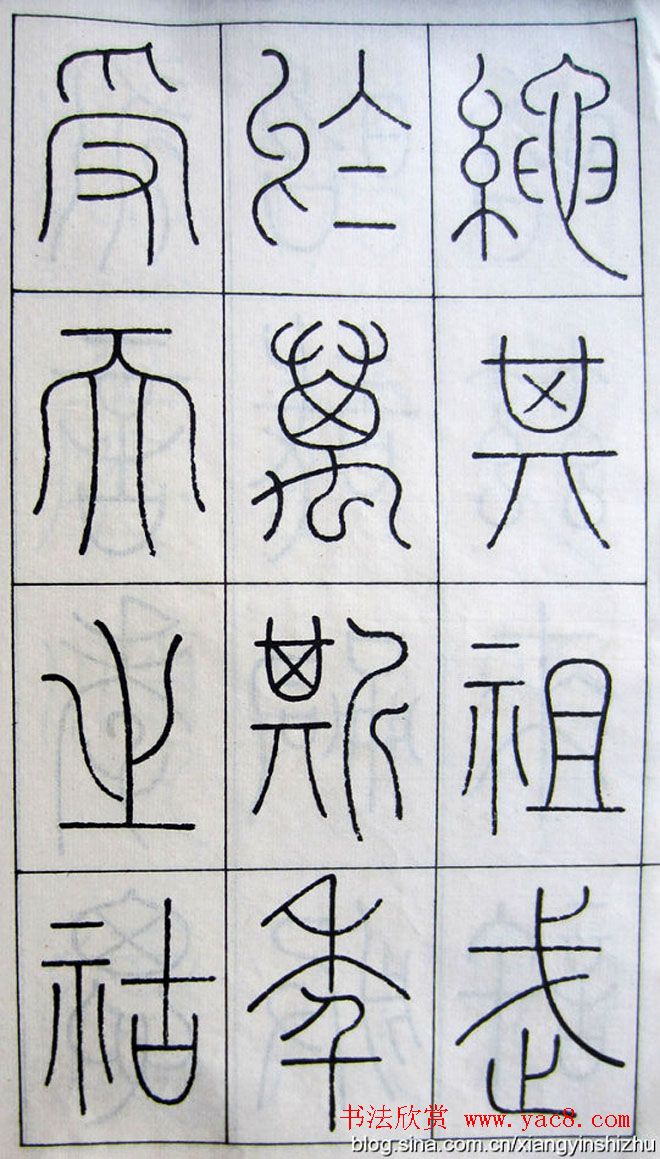 繩其祖武
於萬斯年
受天之祜
书法欣赏 www.yac8.com
blog.sina.com.cn/xiangyinshizhu